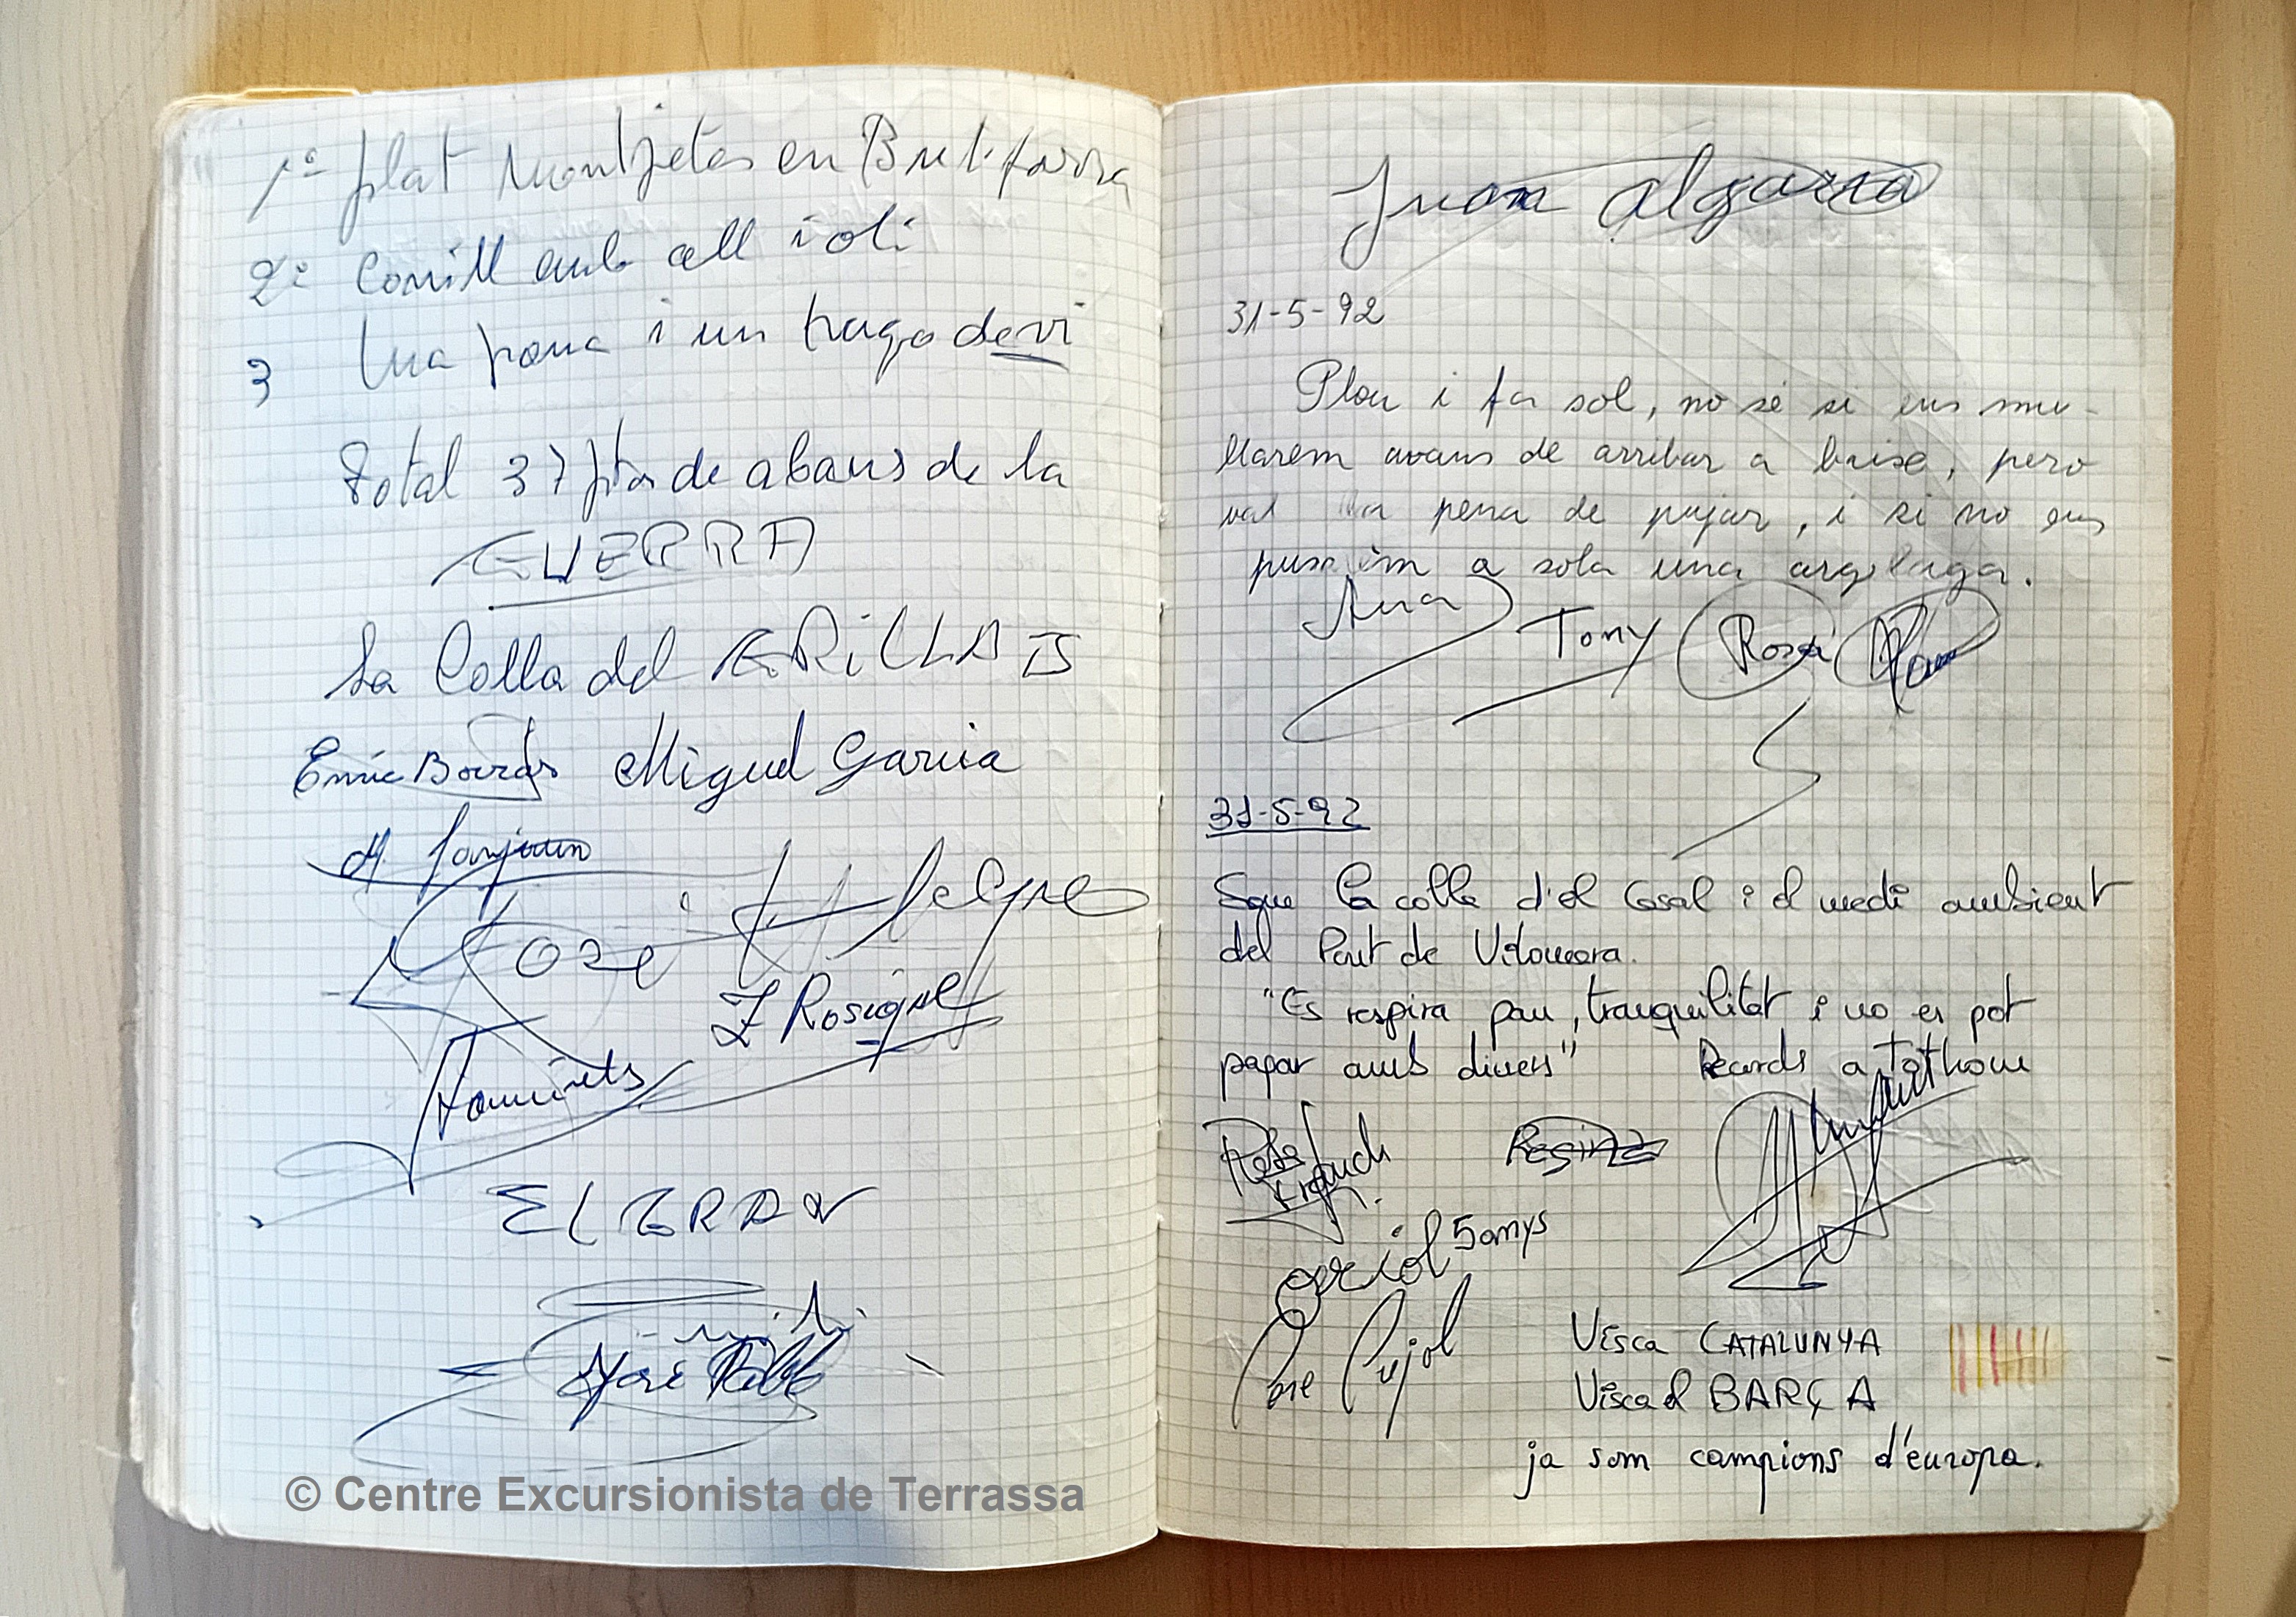 1º plat Montjetes en Butifarra
2º Conill amb all i oli
3 Una poma i un trago de vi
total 37 ptas de abans de la
GUERRA
La Colla del GRILLATS
Enric Borras Miguel Garcia
José
F Rosique
EL GRAN
José
© Centre Excursionista de Terrassa
Juan Algarra
31-5-92
Plou i fa sol, no sé si ens mu-
llarem avans de arribar a baixe, pero
val la pena de pujar, i si no ens
pusem a sota una argelaga.
Ana Tony Rosa
31-5-92
Som la colla d'el Casal i el medi ambient
del Pont de Vilomara.
"Es respira pau, tranquilitat i no es pot
pagar amb diners" Records a Tothom
Rosa Regina
oriol 5 anys
Jose Pujol
Visca CATALUNYA
Visca el BARÇA
ja som campions d'europa.